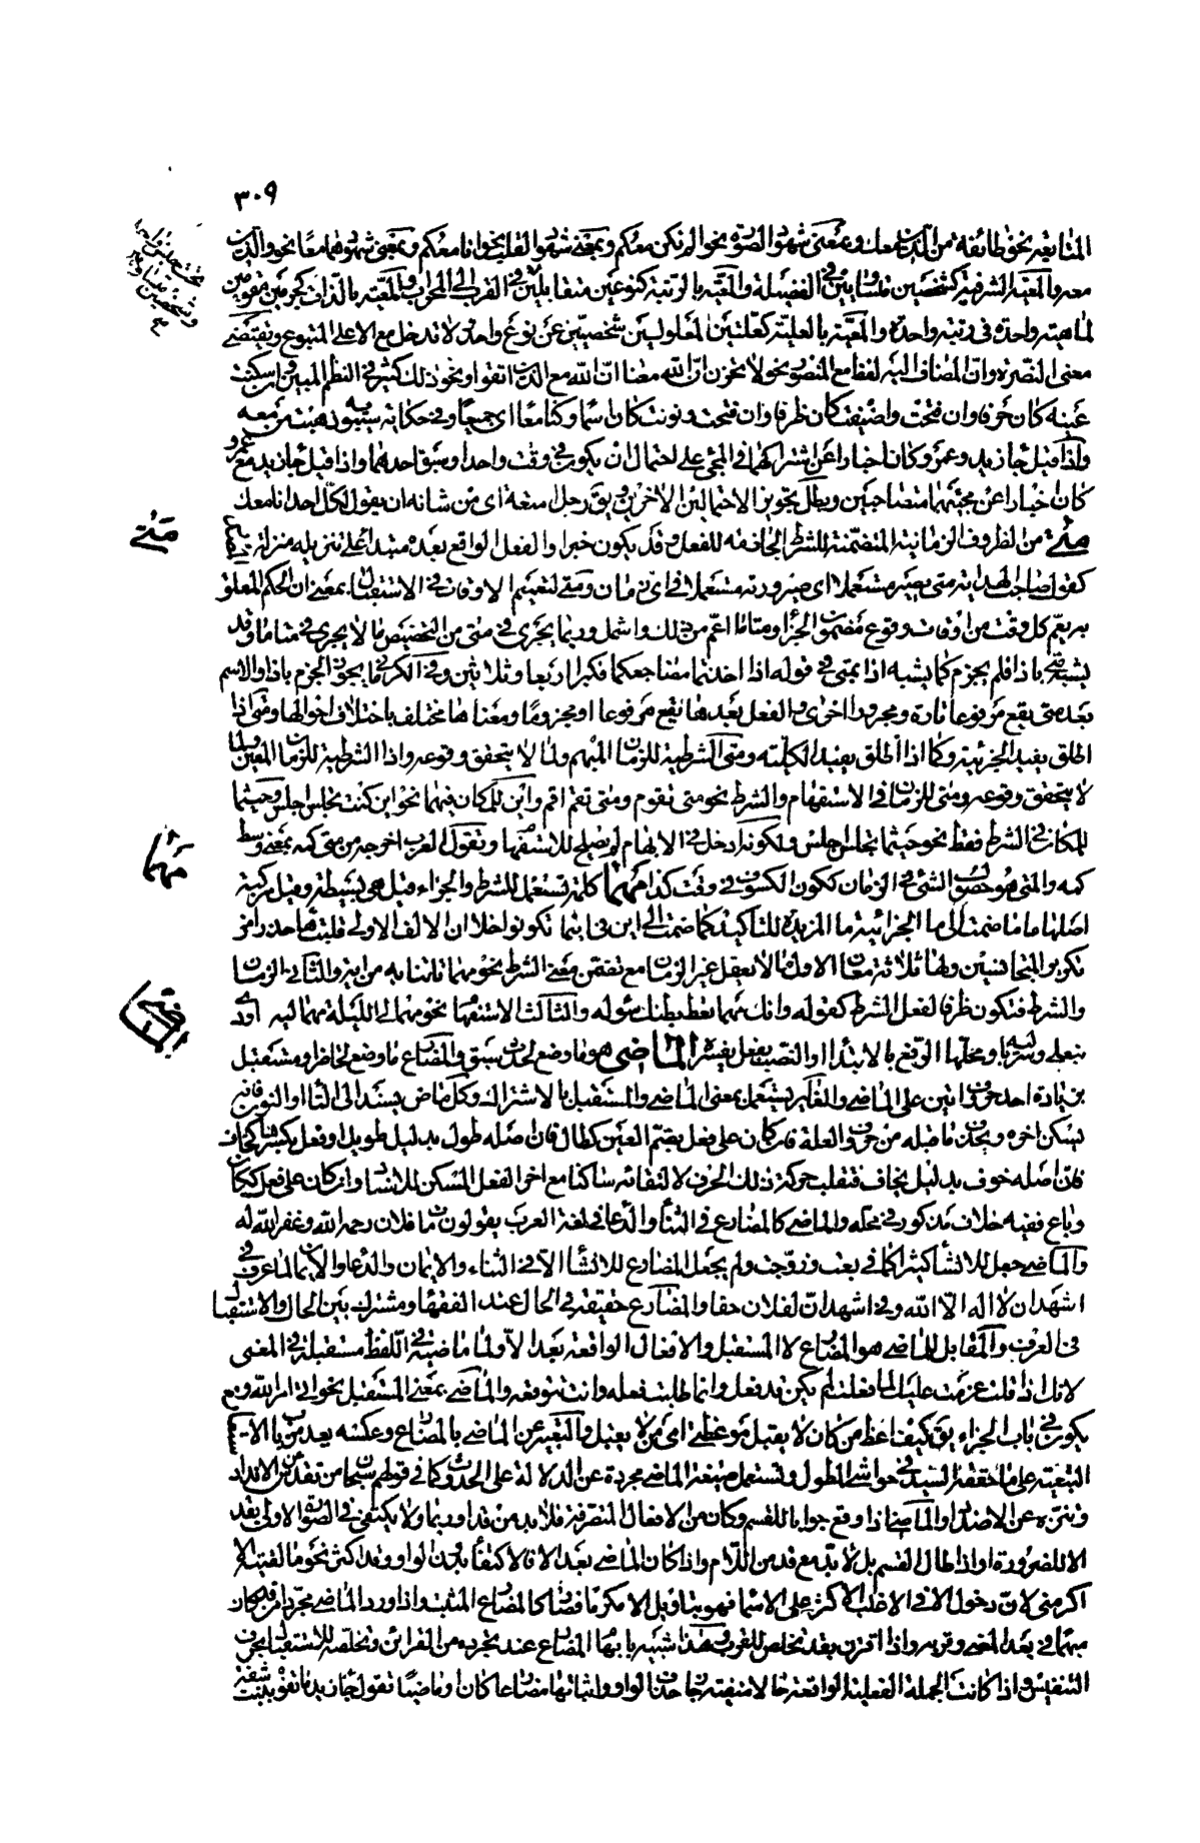 ٣٠٩
المتابعة نحو طائفة من الذين معك وبمعنى شهود الصورة نحو ألم نكن معكم وبمعنى شهود القلب نحو انا معكم وبمعنى شهودهما معا نحو والذين
معه والمعية الشرفية كشخصين متساويين في الفضيلة والمعية بالرتبة كنوعين متقابلين في القرب الى المحراب والمعية بالذات كجزئين مقومين
لماهية واحدة في رتبة واحدة والمعية بالعلية كعلتين لمعلولين شخصيين عن نوع واحد ولا تدخل مع الا على المتبوع ويقتضي
معنى النصرة وان المضاف اليه لفظ مع المنصوب نحو لا تحزن ان الله معنا ان الله مع الذين اتقوا ونحو ذلك كثير في النظم المبين وان سكنت
عينه كان حرفا وان فتحت واضيفت كان ظرفا وان فتحت ونونت كان اسما وكنا معا اي جميعا وفي حكاية سيبويه ذهبت من معه
واذا قيل جاء زيد وعمرو كان اخبارا عن اشتراكهما في المجئ على احتمال ان يكون في وقت واحد او سبق احدهما واذا قيل جاء زيد مع عمرو
كان اخبارا عن مجيئهما متصاحبين وبطل تجويز الاحتمالين الاخرين ويق رجل امعة اي من شانه ان يقول لكل احد انا معك
متى من الظروف الزمانية المتضمنة للشرط الجازمة للفعل وقد يكون خبرا والفعل الواقع بعده مبتدأ على تنزيله منزلة المصدر
كقول صاحب الهداية متى يصير مستعملا اي صيرورته مستعملا في اي زمان ومتى لتعميم الاوقات في الاستقبال بمعنى ان الحكم المعلق
به يعم كل وقت من اوقات وقوع مضمون الجزاء ومتاما اعم من ذلك واشمل وربما يجري في متى من التخصيص ما لا يجري في متاما وقد
يشبه متى باذا فلم يجزم كما يشبه اذا بمتى في قوله اذا اخذتما مضاجعكما فكبرا اربعا وثلاثين وفي الكرماني يجوز الجزم باذا والاسم
بعد متى يقع مرفوعا تارة ومجرورا اخرى والفعل بعدها يقع مرفوعا او مجزوما ومعناها مختلف باختلاف احوالها ومتى اذا
اطلق يفيد الجزئية وكلما اذا اطلق يفيد الكلية ومتى الشرطية للزمان المبهم ولما لا يتحقق وقوعه واذا الشرطية للزمان المعين ولما
لا يتحقق وقوعه ومتى للزمان في الاستفهام والشرط نحو متى تقوم ومتى تقم اقم واين للمكان فيهما نحو اين كنت تجلس اجلس وحيثما
للمكان في الشرط فقط نحو حيثما تجلس اجلس ولكونه ادخل في الابهام لم يصلح للاستفهام وتقول العرب اخرجه من متى كمه بمعنى وسط
كمه والمتى هو حصول الشئ في الزمان ككون الكسوف في وقت كذا مهما كلمة تستعمل للشرط والجزاء قيل هي بسيطة وقيل مركبة
اصلها ما ما ضمت الى ما الجزائية ما المزيدة للتاكيد كما ضمت الى اين في اينما تكونوا خلا ان الالف الاولى قلبت هاء حذرا من
تكرير المتجانسين ولها ثلاثة معان الاول ما لا يعقل غير الزمان مع تضمن معنى الشرط نحو مهما تاتنا به من اية والثاني الزمان
والشرط فتكون ظرفا لفعل الشرط كقوله وانك مهما تعط بطنك سؤله والثالث الاستفهام نحو مهما لي الليلة مهما ليه اودى
بنعلي وسرباليه ومحلها الرفع بالابتداء او النصب بفعل يفسره الماضي هو ما وضع لحدث سبق والمضارع ما وضع لحاضر او مستقبل
بزيادة احد حروف اتين على الماضي والغابر يستعمل بمعنى الماضي والمستقبل بالاشتراك وكل ماض يسند الى التاء او النون فانه
يسكن اخره ويحذف ما قبله من حروف العلة فان كان على فعل بضم العين كطال فان اصله طول بدليل طويل او فعل بكسرها كخاف
فان اصله خوف بدليل يخاف فتقلب حركة ذلك الحرف لالتقائه ساكنا مع اخر الفعل المسكن للاسناد وان كان على فعل ككان
وباع ففيه خلاف مذكور في محله والماضي كالمضارع في الثناء والدعاء في لغة العرب يقولون مات فلان رحمه الله وغفر الله له
والماضي جعل للانشاء كثيرا كما في بعت وزوجت ولم يجعل المضارع للانشاء الا في الثناء والايمان والدعاء والاتيان لما عرف في
اشهد ان لا اله الا الله وفي اشهد ان لفلان حقا والمضارع حقيقة في الحال عند الفقهاء ومشترك بين الحال والاستقبال
في العرف والمقابل للماضي هو المضارع لا المستقبل والافعال الواقعة بعد الا ولما ماضية في اللفظ مستقبلة في المعنى
لانك اذا قلت عزمت عليك لما فعلت لم يكن قد فعل وانما طلبت فعله وانت تتوقعه والماضي بمعنى المستقبل نحو اتى امر الله وبع
يكون في باب الجزاء يق كيف اعظ من كان لا يقبل موعظتي اي من لا يقبل والتعبير عن الماضي بالمضارع وعكسه يعد من باب الاستعارة
التبعية على ما حققه السيد في حواشي المطول وتستعمل صيغة الماضي مجردة عن الدلالة على الحدوث كما في قولهم سبحان من تقدس عن الانداد
وتنزه عن الاضداد والماضي اذا وقع جوابا للقسم وكان من الافعال المتصرفة فلا بد من قد او ربما ولا يكتفي في الصورة الاولى بقد
الا للضرورة او اذا طال القسم بل لا بد مع قد من اللام واذا كان الماضي بعد الا فالاكتفاء بدون الواو وقد اكثر نحو ما لقيته الا
اكرمني لان دخول الا في الاغلب الاكثر على الاسماء فهو بتاويل الا مكرما فصار كالمضارع المثبت واذا ورد الماضي مجردا من قد كان
مبهما في بعد المضي وقربه واذا اقترن بقد تخلص للقرب وهذا شبيه بابهام المضارع عند تجرده من القرائن وتخلصه للاستقبال بحرف
التنفيس واذا كانت الجملة الفعلية الواقعة حالا منفية جاز حذف الواو واثباتها مضارعا كان او ماضيا تقول جاء زيد ما تفوه ببنت شفة
متى
مهما
الماضي